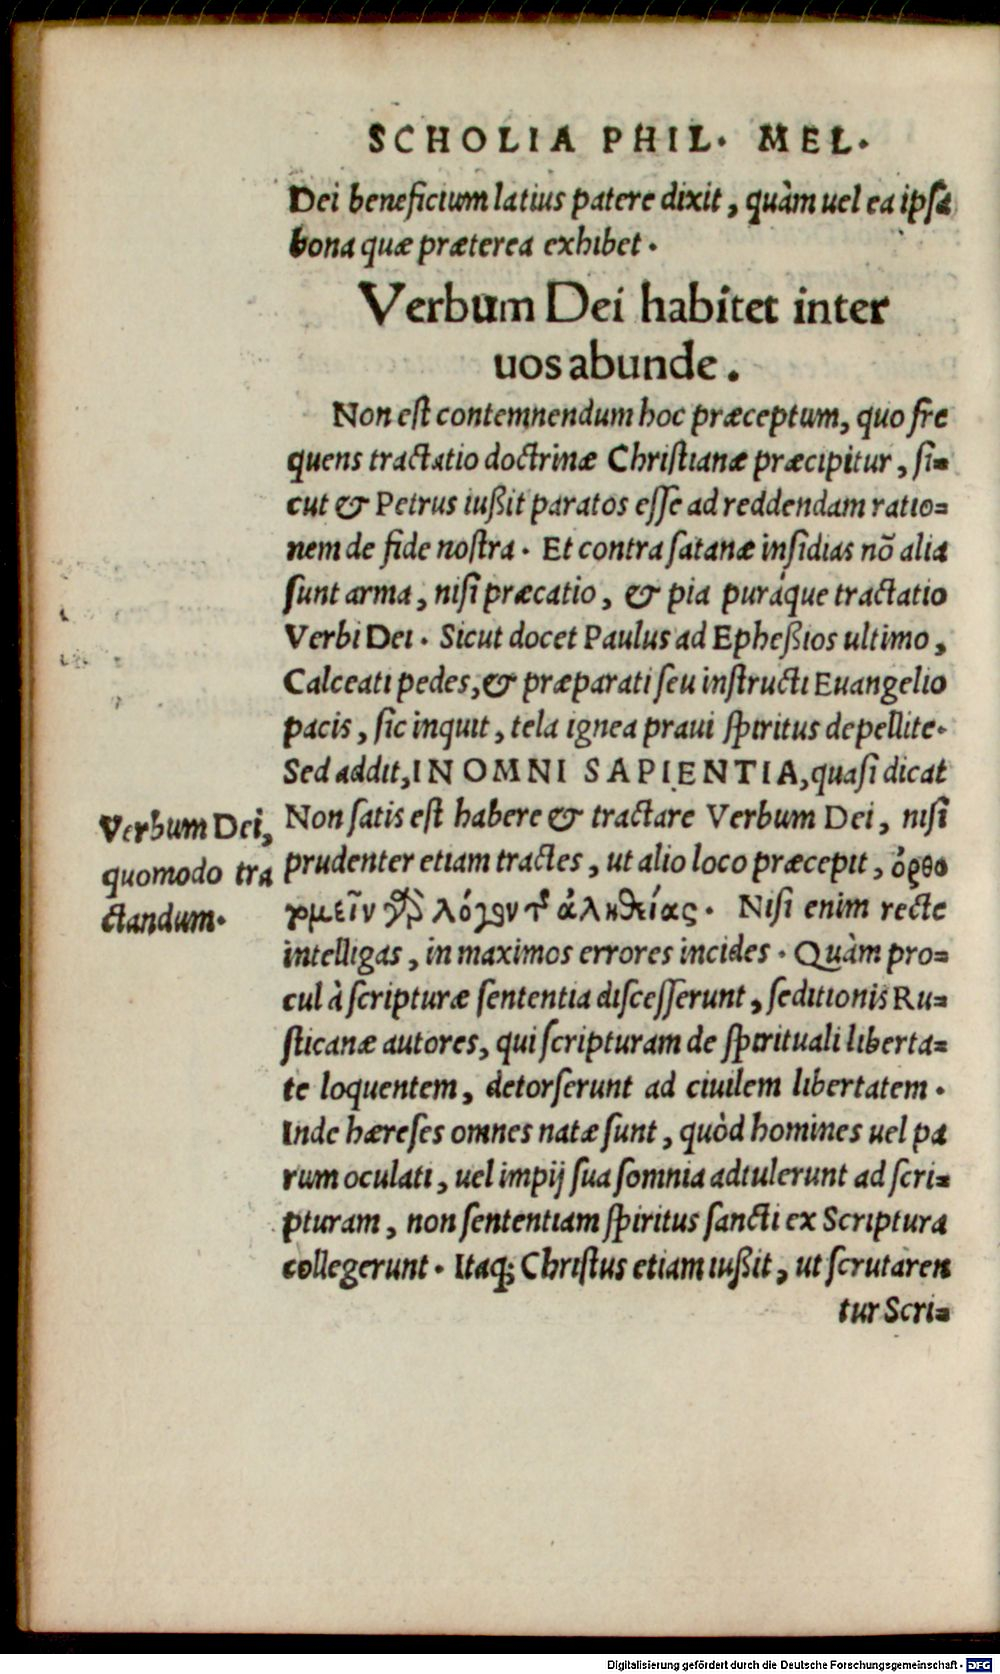 SCHOLIA PHIL. MEL.
Dei beneficium latius patere dixit, quàm uel ea ipsa
bona quæ præterea exhibet.
Verbum Dei habitet inter
uos abunde.
Non est contemnendum hoc præceptum, quo fre
quens tractatio doctrinæ Christianæ præcipitur, si=
cut & Petrus iußit paratos esse ad reddendam ratio=
nem de fide nostra. Et contra satanæ insidias nõ alia
sunt arma, nisi præcatio, & pia puráque tractatio
Verbi Dei. Sicut docet Paulus ad Epheßios ultimo,
Calceati pedes, & præparati seu instructi Euangelio
pacis, sic inquit, tela ignea praui spiritus depellite.
Sed addit, IN OMNI SAPIENTIA, quasi dicat
Verbum Dei,
quomodo tra
ctandum.
Non satis est habere & tractare Verbum Dei, nisi
prudenter etiam tractes, ut alio loco præcepit, ὀρθο
τομεῖν τὸν λόγον τῆς ἀληθείας. Nisi enim recte
intelligas, in maximos errores incides. Quàm pro=
cul à scripturæ sententia discesserunt, seditionis Ru=
sticanæ autores, qui scripturam de spirituali liberta=
te loquentem, detorserunt ad ciuilem libertatem.
Inde hæreses omnes natæ sunt, quòd homines uel pa
rum oculati, uel impij sua somnia adtulerunt ad scri=
pturam, non sententiam spiritus sancti ex Scriptura
collegerunt. Itaq; Christus etiam iußit, ut scrutaren
tur Scri=
Digitalisierung gefördert durch die Deutsche Forschungsgemeinschaft - DFG